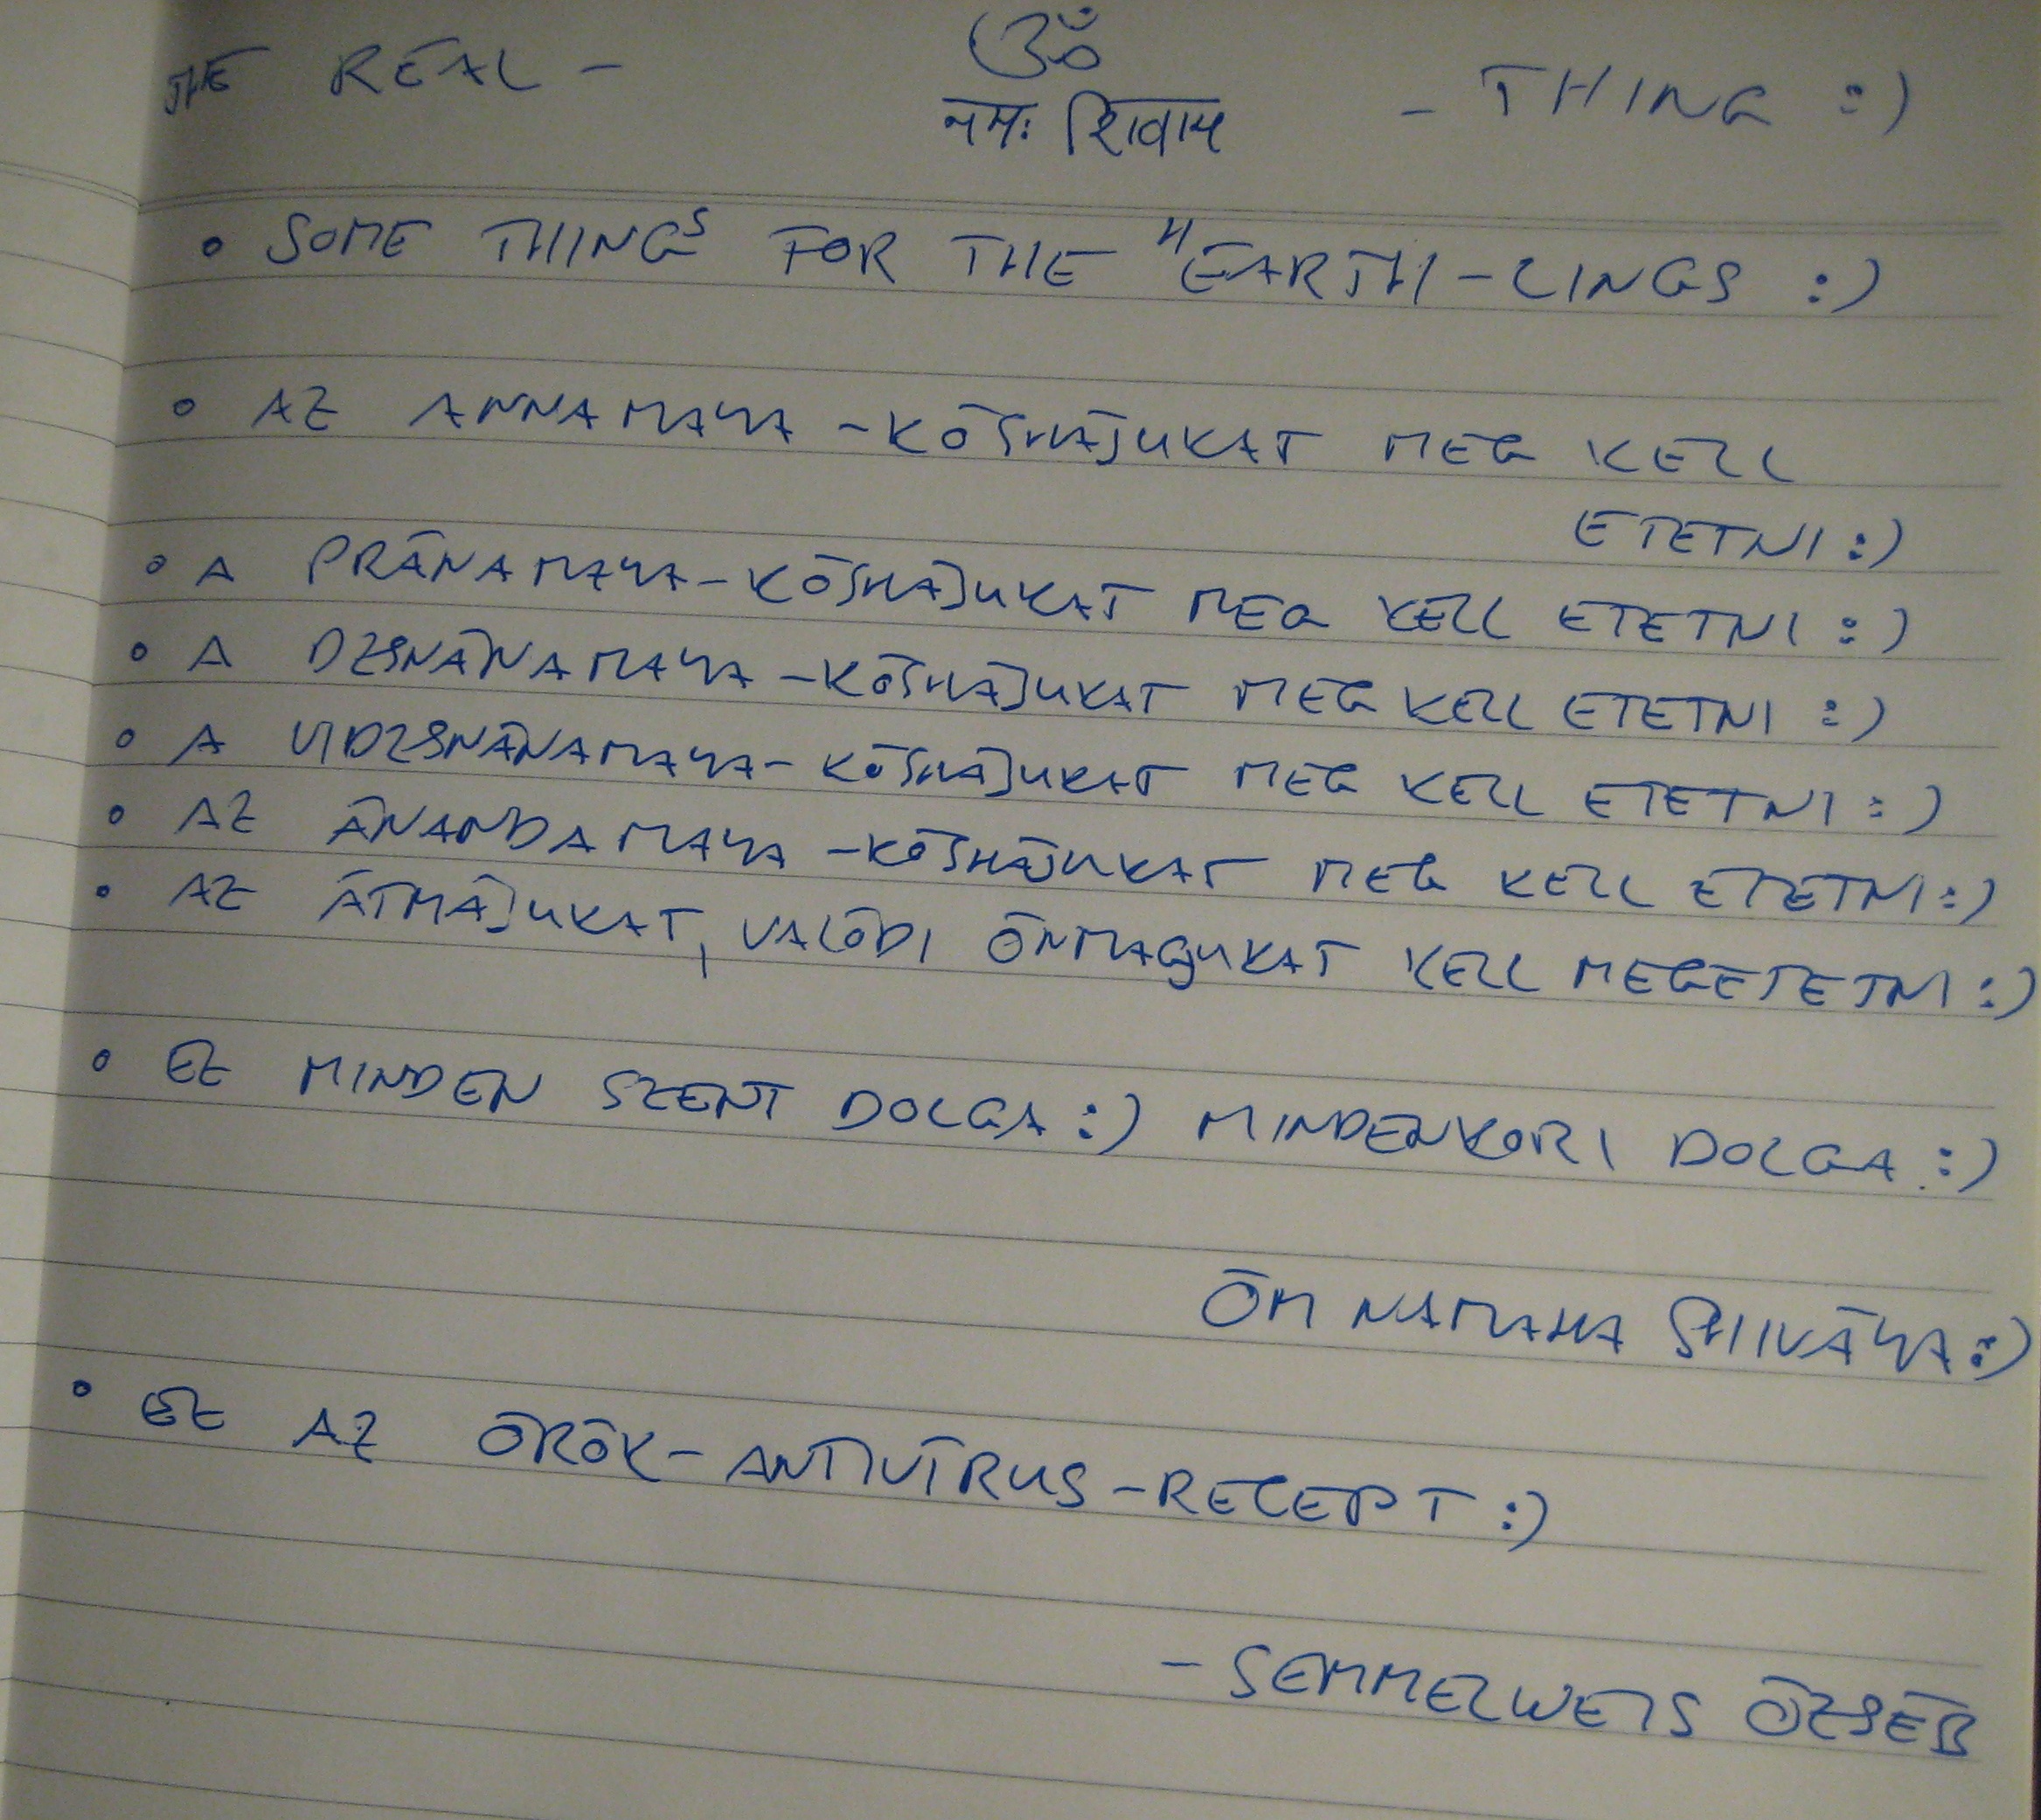 THE REAL - ॐ - THING :)
नमः शिवाय
• SOME THINGS FOR THE "EARTH-LINGS :)
• AZ ANNAMAYA-KŌSHĀJUKAT MEG KELL
ETETNI :)
• A PRĀNAMAYA-KŌSHĀJUKAT MEG KELL ETETNI :)
• A DZSNĀNAMAYA-KŌSHĀJUKAT MEG KELL ETETNI :)
• A VIDZSNĀNAMAYA-KŌSHĀJUKAT MEG KELL ETETNI :)
• AZ ĀNANDAMAYA-KŌSHĀJUKAT MEG KELL ETETNI :)
• AZ ĀTMĀJUKAT, VALŌDI ŌNMAGUKAT KELL MEGETETNI :)
• EZ MINDEN SZENT DOLGA :) MINDENKORI DOLGA :)
ŌM NAMAHA SHIVĀYA :)
• EZ AZ ŌRŌK-ANTIVĪRUS-RECEPT :)
- SEMMELWEIS ŌZSĒB